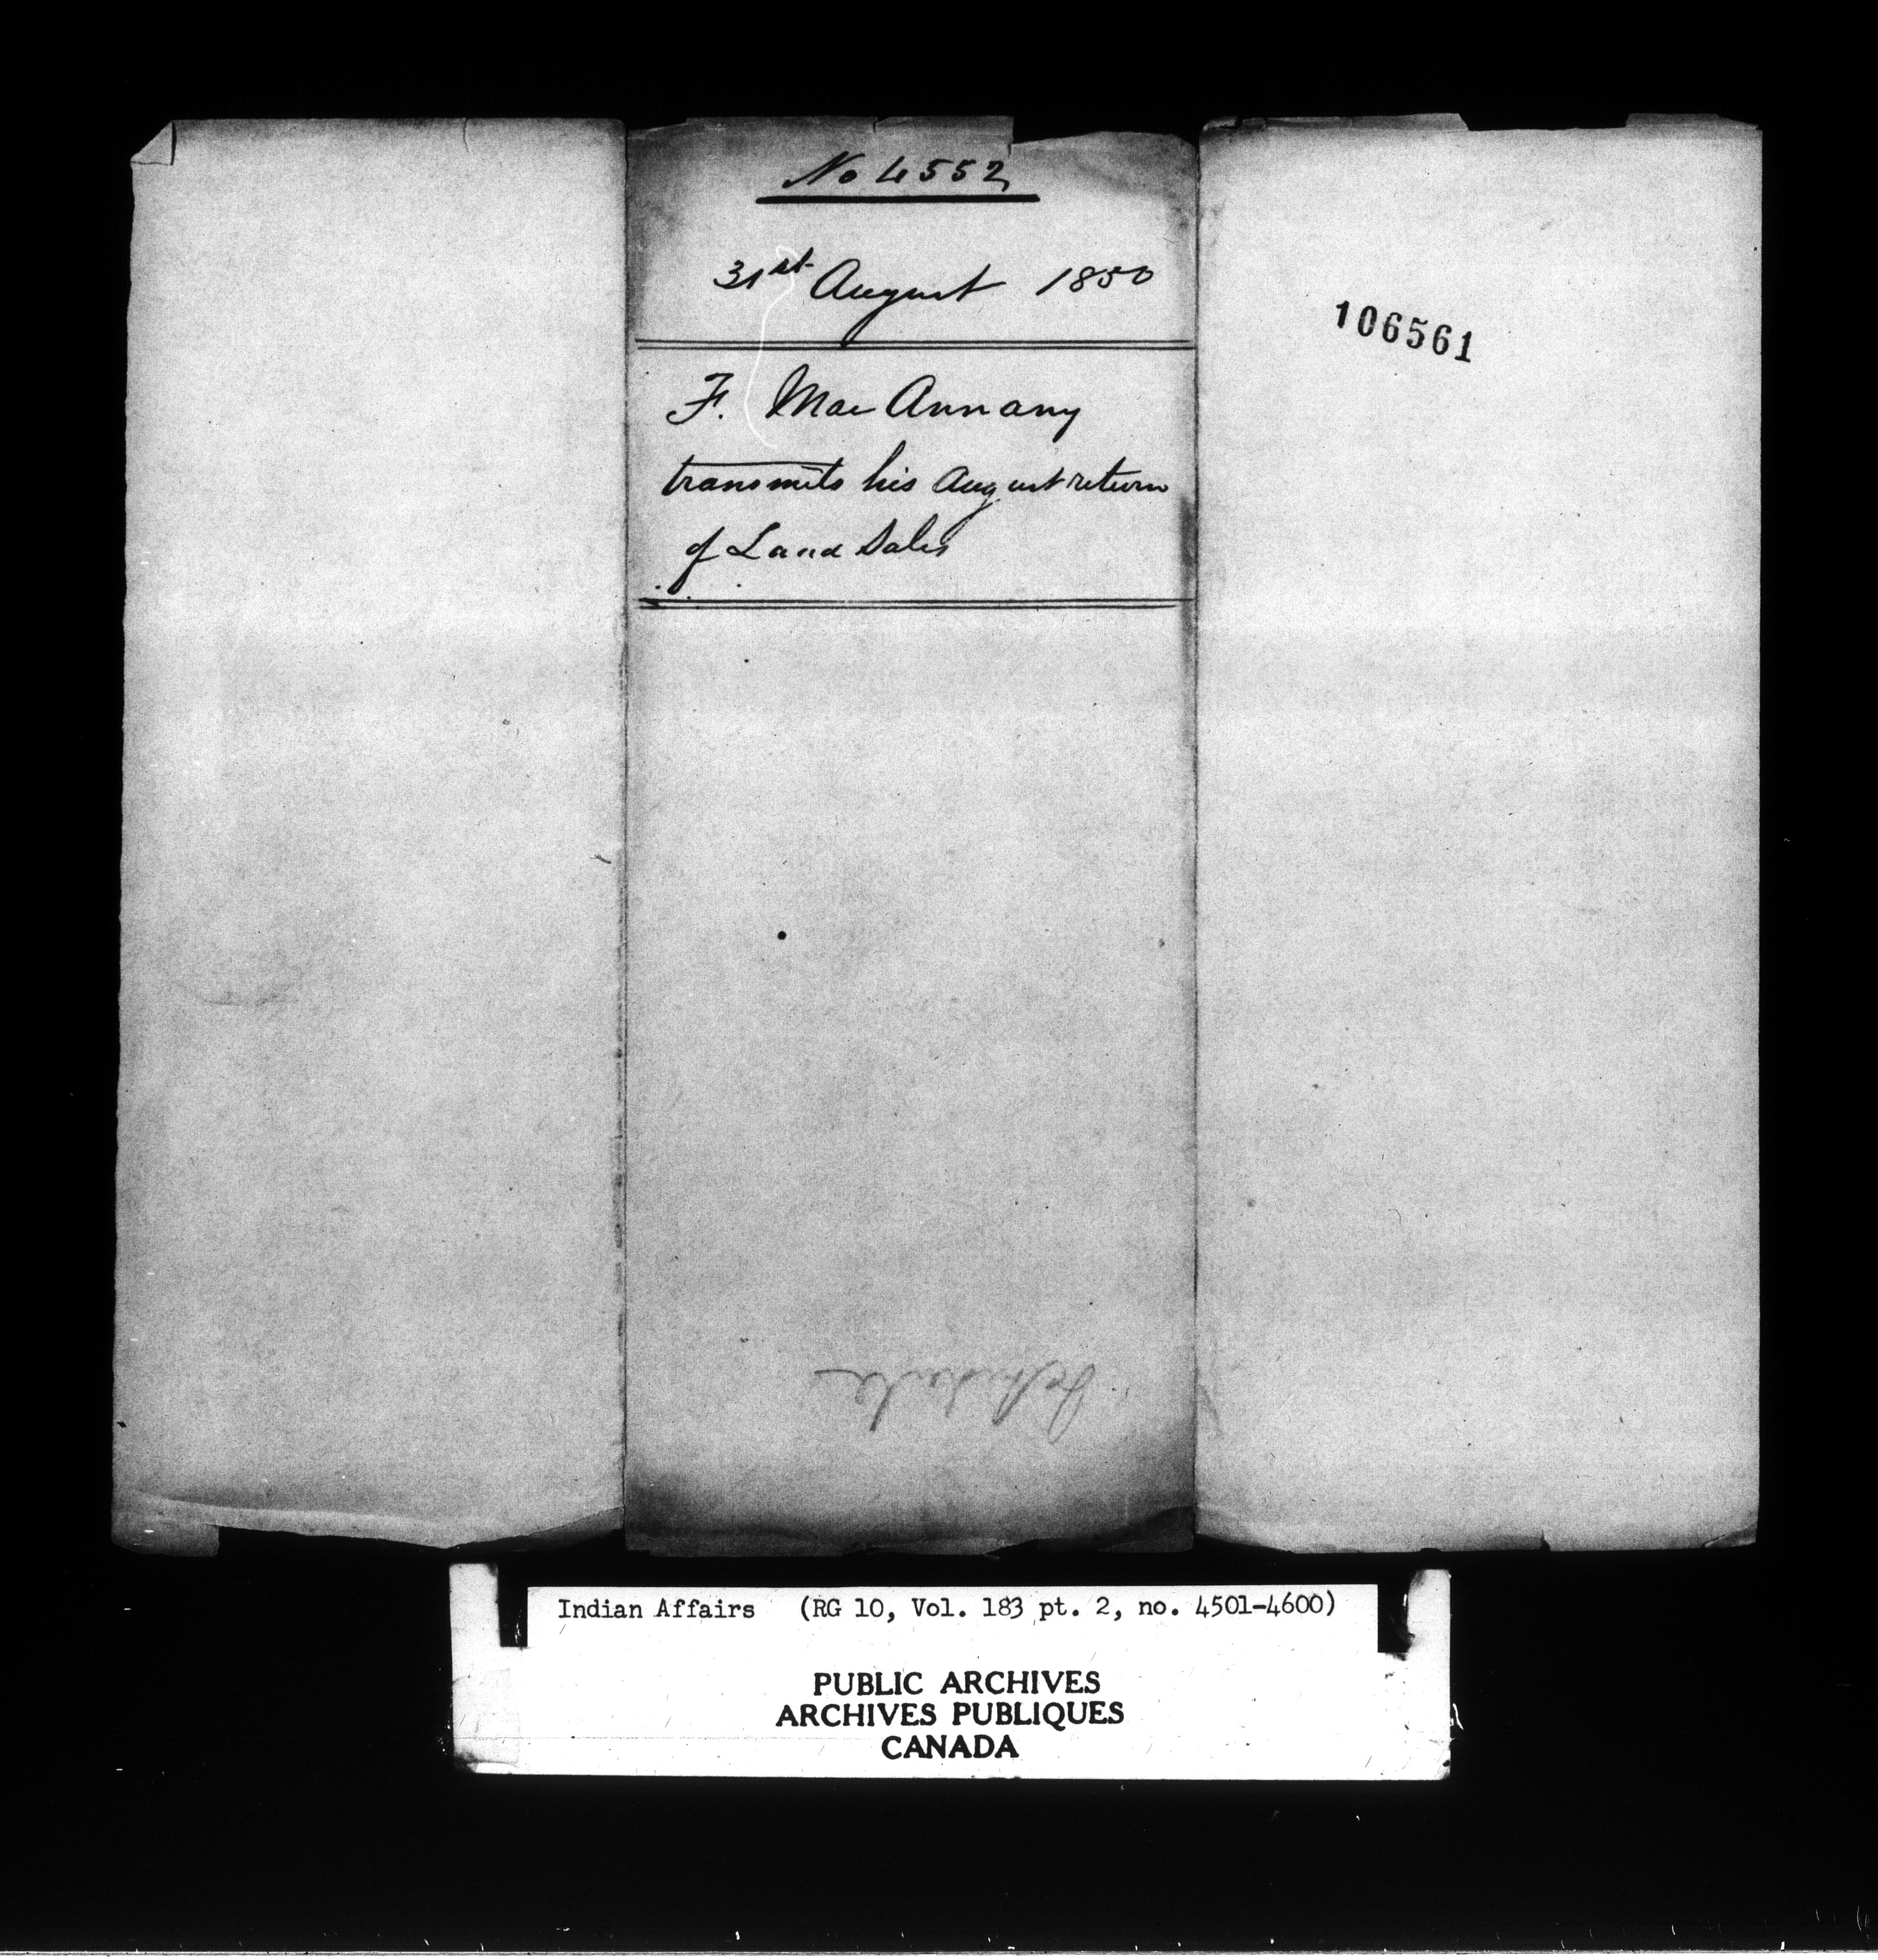 No 4552
31st August 1850
F. Mac Annany
transmits his August return
of Land Sales
106561
Indian Affairs (RG 10, Vol. 183 pt. 2, no. 4501-4600)
PUBLIC ARCHIVES
ARCHIVES PUBLIQUES
CANADA